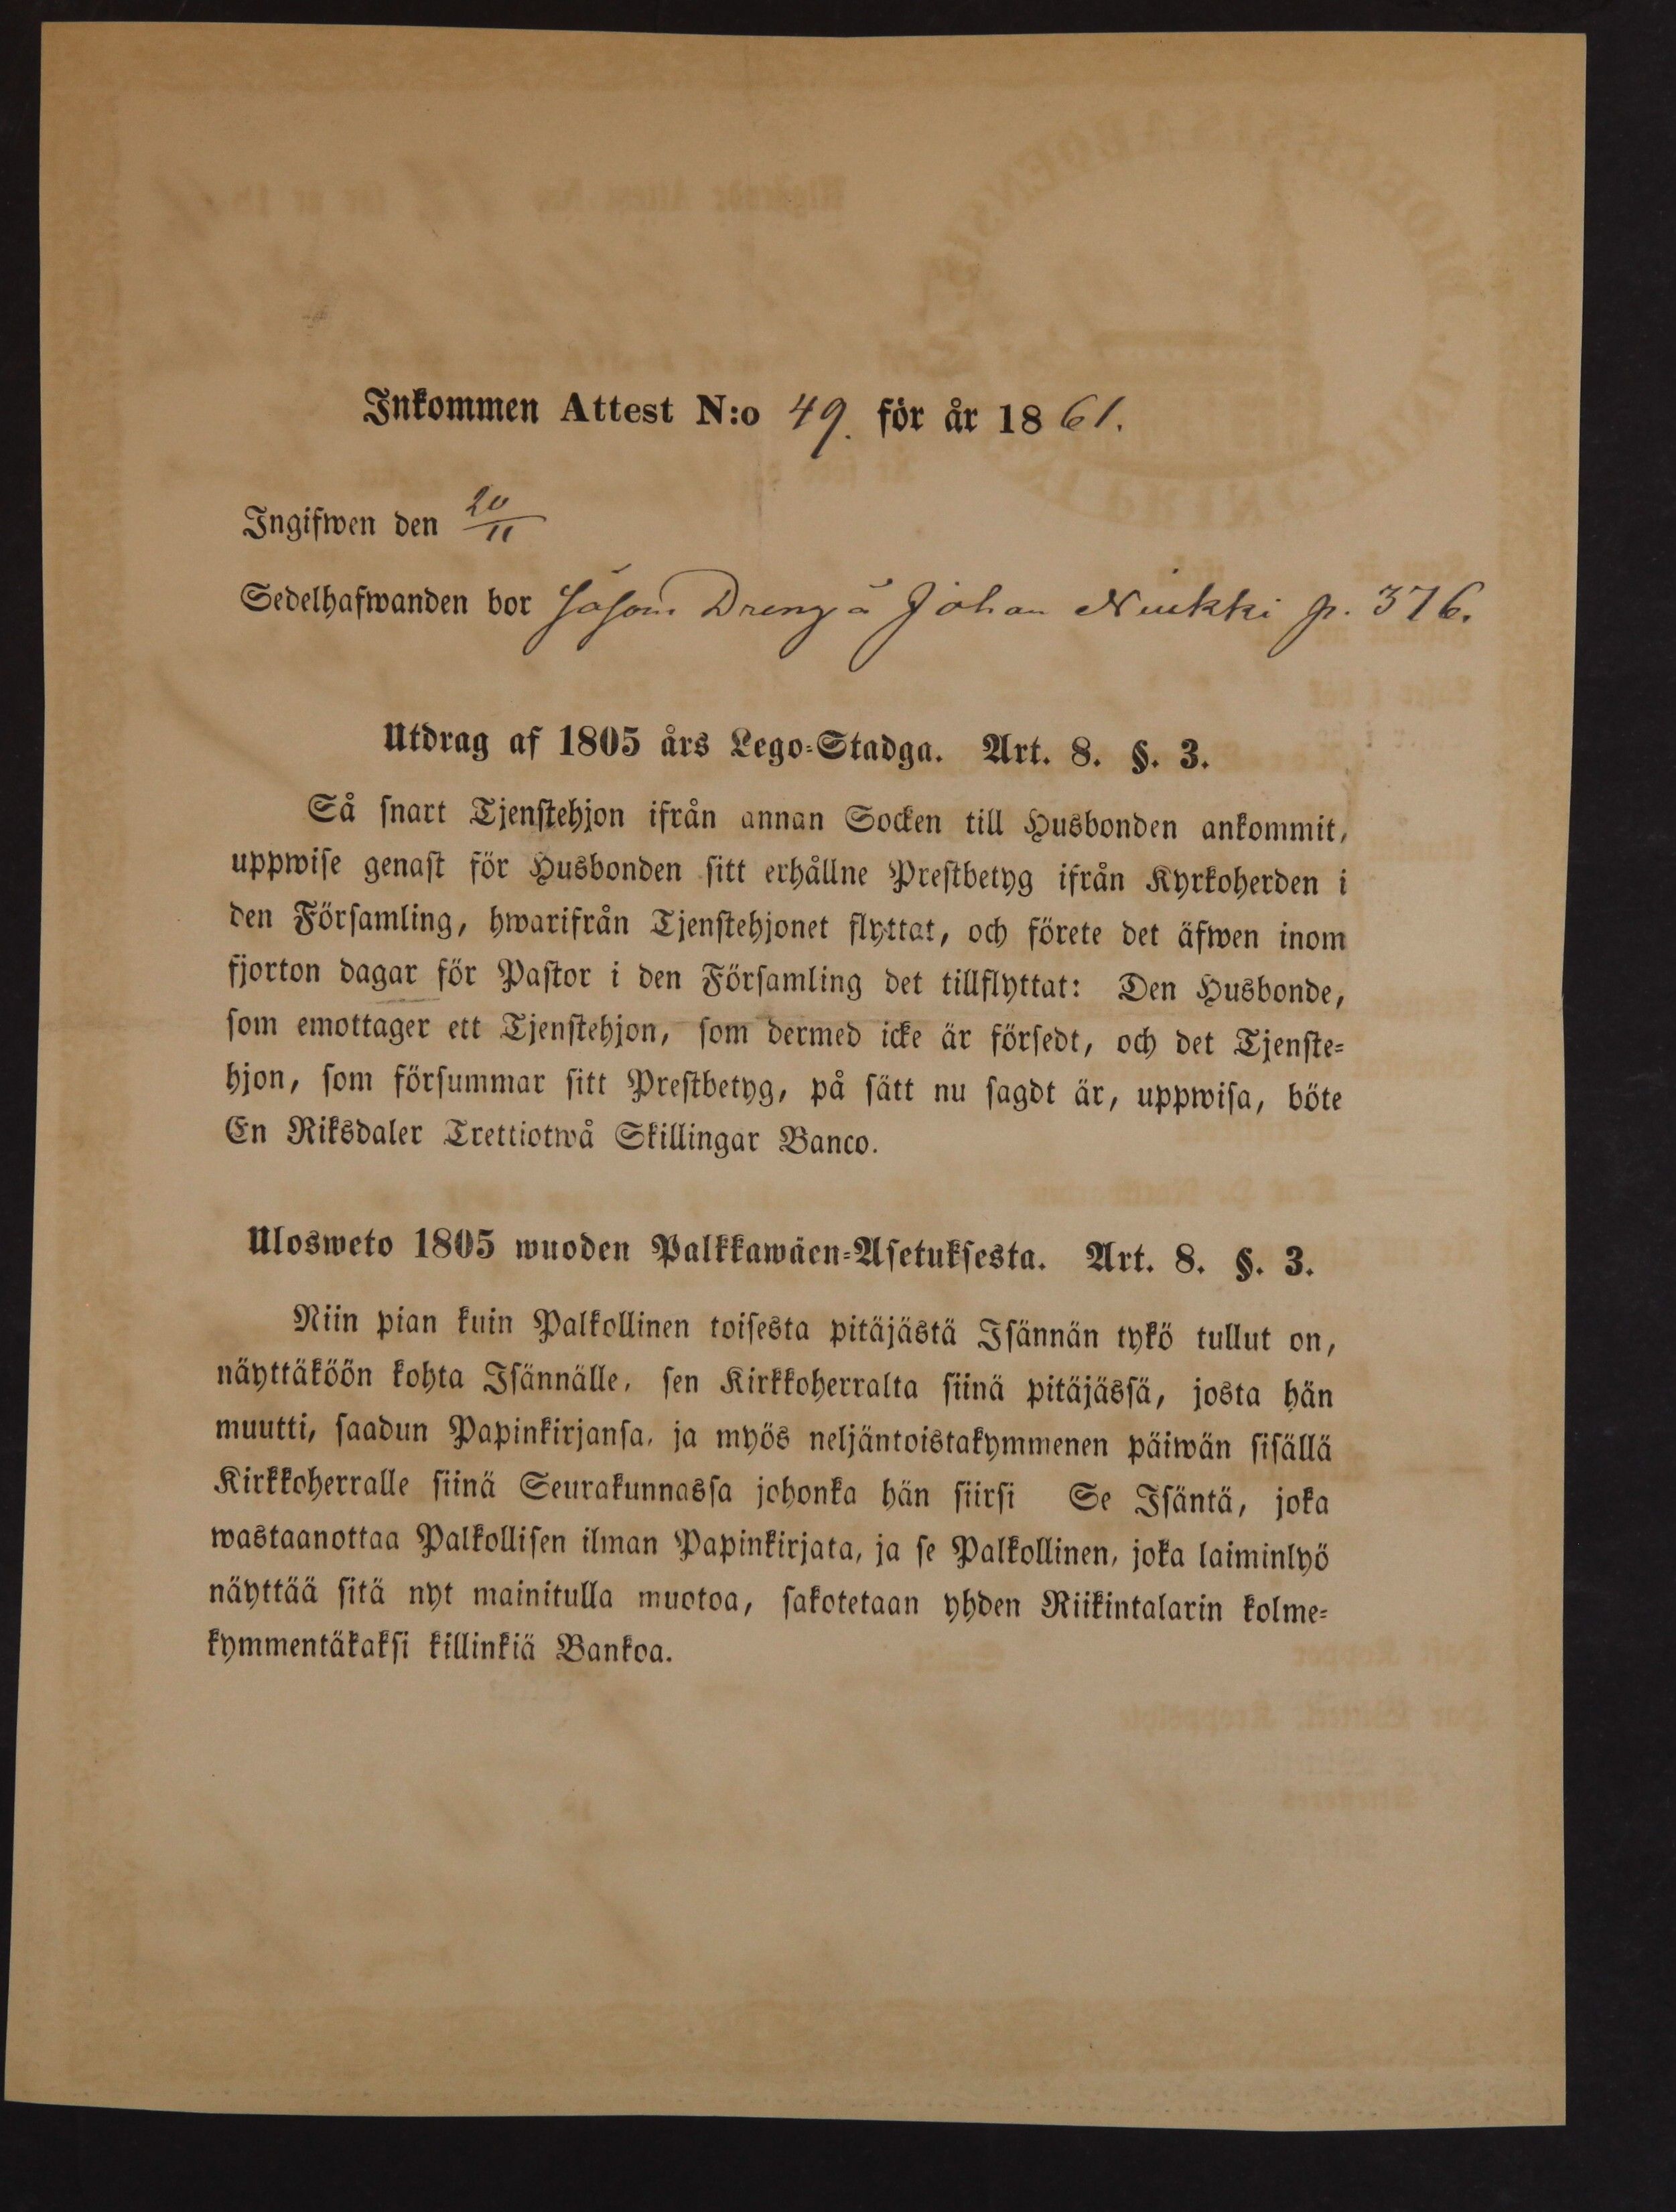 Inkommen Attest N:o 49. för år 1861.
Ingifwen den 20/11
Sedelhafwanden bor såsom Dreng å Johan Niukki p. 376.
Utdrag af 1805 års Lego-Stadga. Art. 8. §. 3.
Så snart Tjenstehjon ifrån annan Socken till Husbonden ankommit,
uppwise genast för Husbonden sitt erhållne Prestbetyg ifrån Kyrkoherden i
den Församling, hwarifrån Tjenstehjonet flyttat, och förete det äfwen inom
fjorton dagar för Pastor i den Församling det tillflyttat: Den Husbonde,
som emottager ett Tjenstehjon, som dermed icke är försedt, och det Tjenste-
hjon, som försummar sitt Prestbetyg, på sätt nu sagdt är, uppwisa, böte
En Riksdaler Trettiotwå Skillingar Banco.
Ulosweto 1805 wuoden Palkkawäen-Asetuksesta. Art. 8. §. 3.
Niin pian kuin Palkollinen toisesta pitäjästä Isännän tykö tullut on,
näyttäköön kohta Isännälle, sen Kirkkoherralta siinä pitäjässä, josta hän
muutti, saadun Papinkirjansa, ja myös neljäntoistakymmenen päiwän sisällä
Kirkkoherralle siinä Seurakunnassa johonka hän siirsi Se Isäntä, joka
wastaanottaa Palkollisen ilman Papinkirjata, ja se Palkollinen, joka laiminlyö
näyttää sitä nyt mainitulla muotoa, sakotetaan yhden Riikintalarin kolme-
kymmentäkaksi killinkiä Bankoa.